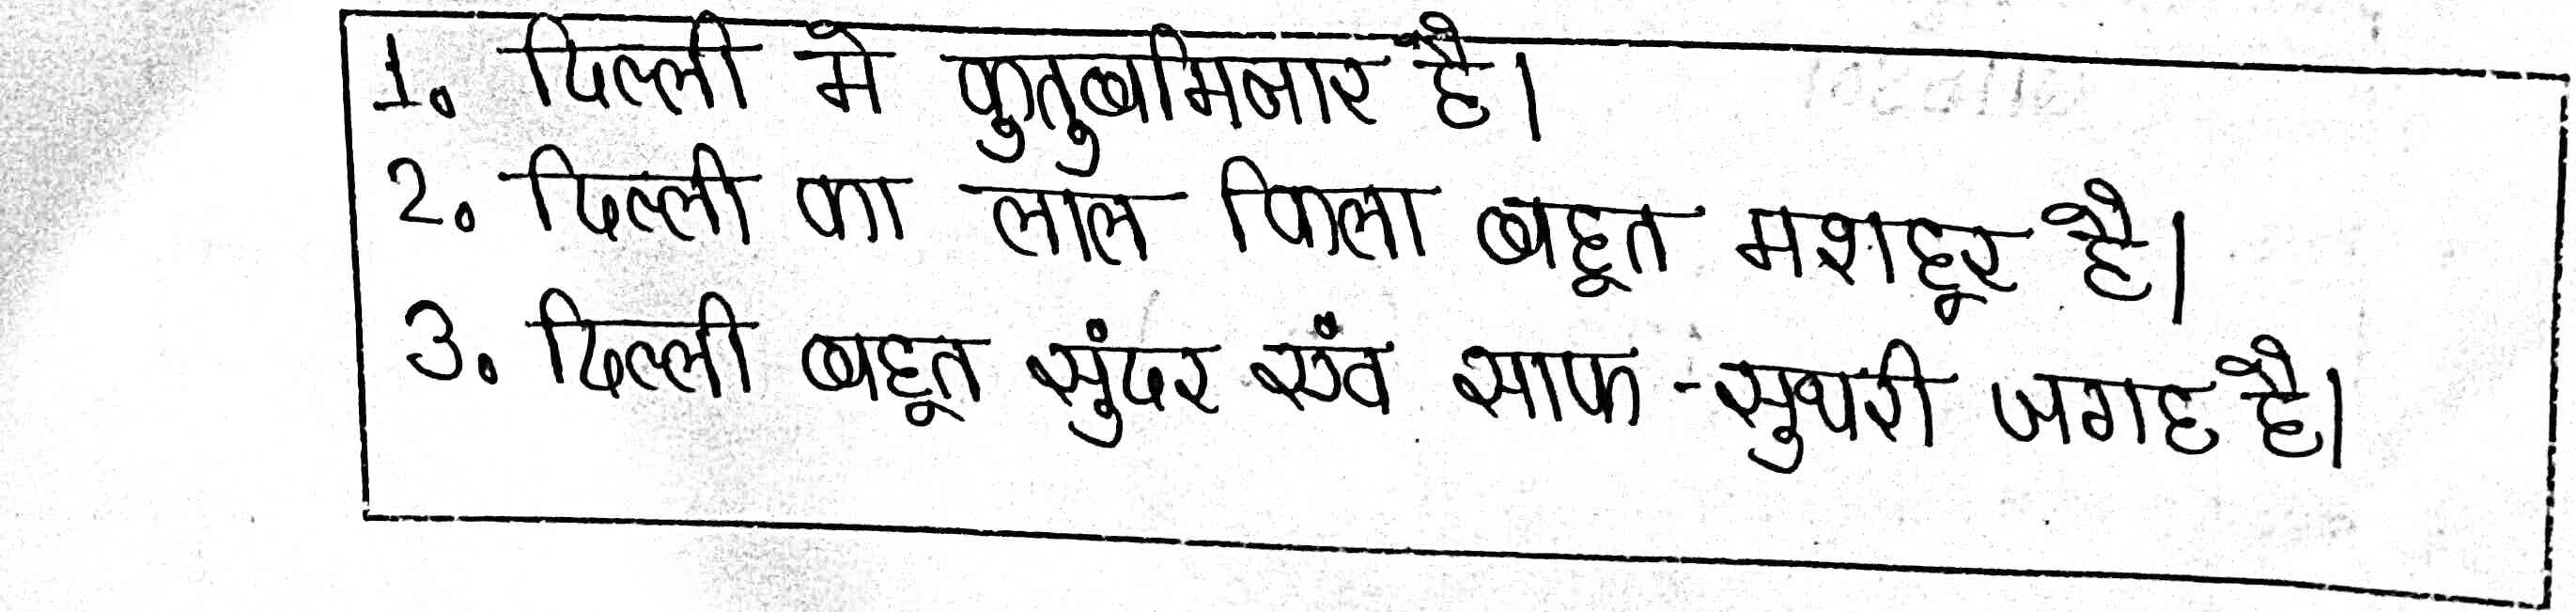 1. दिल्ली मे कुतुबमिनार है।
2. दिल्ली का लाल किला बहूत मशहूर है।
3. दिल्ली बहूत सुंदर एंव साफ-सुथरी जगह है।